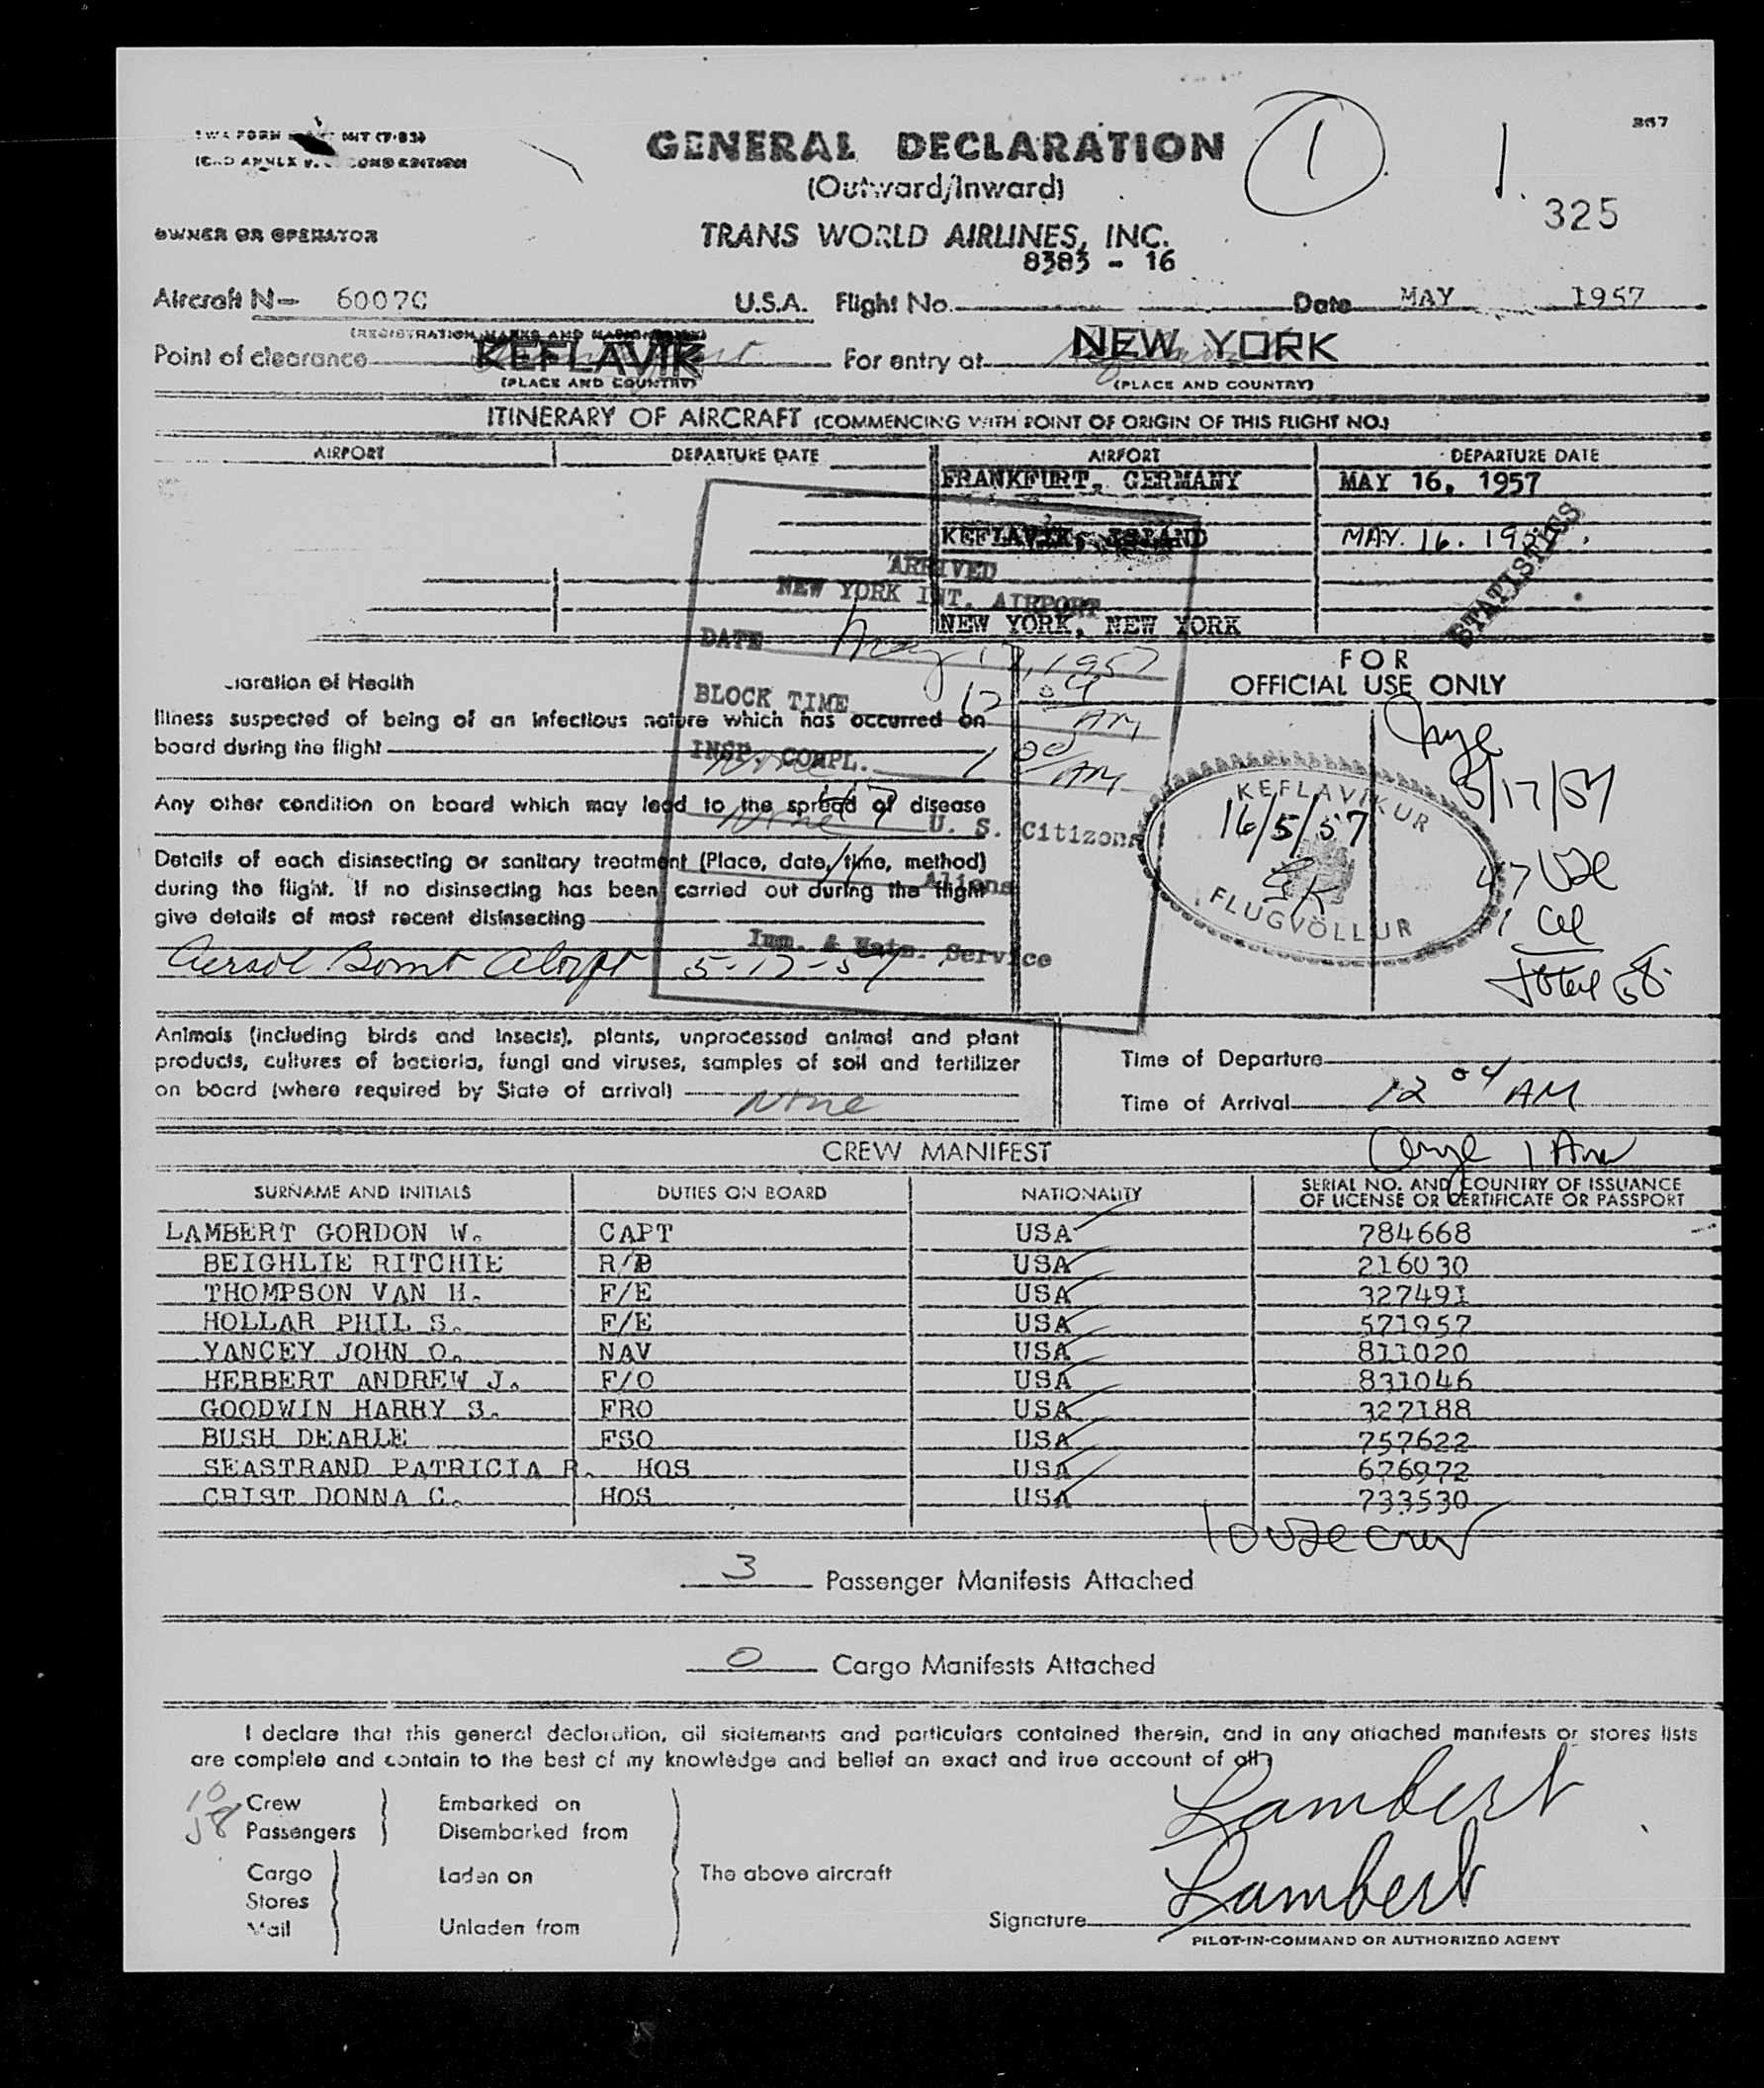 367
GENERAL DECLARATION
(Outward/Inward)
1
1.
325
OWNER OR OPERATOR
TRANS WORLD AIRLINES, INC.
8383 - 16
Aircraft N- 6007C U.S.A. Flight No. Date MAY 1957
(REGISTRATION MARKS AND
Point of clearance KEFLAVIK For entry at NEW YORK
(PLACE AND COUNTRY) (PLACE AND COUNTRY)
ITINERARY OF AIRCRAFT (COMMENCING WITH POINT OF ORIGIN OF THIS FLIGHT NO.)
AIRPORT DEPARTURE DATE AIRPORT DEPARTURE DATE
FRANKFURT, GERMANY MAY 16, 1957
KEFLAVIK, ISLAND MAY. 16. 1957.
STATISTICS
ARRIVED
NEW YORK INT. AIRPORT
NEW YORK, NEW YORK
DATE May 17, 1957
BLOCK TIME 12 04 AM
INSP. COMPL. 1 00 AM
U. S. Citizens
Aliens
Imm. & Natz. Service
FOR
OFFICIAL USE ONLY
laration of Health
Illness suspected of being of an infectious nature which has occurred on
board during the flight
None
Any other condition on board which may lead to the spread of disease
None
Details of each disinsecting or sanitary treatment (Place, date, time, method)
during the flight. If no disinsecting has been carried out during the flight
give details of most recent disinsecting
5-17-57
KEFLAVIKUR
16/5/57
FLUGVÖLLUR
5/17/57
47 USC
total 58
Animals (including birds and insects), plants, unprocessed animal and plant
products, cultures of bacteria, fungi and viruses, samples of soil and fertilizer
on board (where required by State of arrival) None
Time of Departure
Time of Arrival 12 04 AM
CREW MANIFEST
SURNAME AND INITIALS DUTIES ON BOARD NATIONALITY SERIAL NO. AND COUNTRY OF ISSUANCE
OF LICENSE OR CERTIFICATE OR PASSPORT
LAMBERT GORDON W. CAPT USA 784668
BEIGHLIE RITCHIE USA 216030
THOMPSON VAN H. F/E USA 327491
HOLLAR PHIL S. F/E USA 571957
YANCEY JOHN O. NAV USA 811020
HERBERT ANDREW J. F/O USA 831046
GOODWIN HARRY S. FRO USA 327188
BUSH DEARLE FSO USA 757622
SEASTRAND PATRICIA R. HOS USA 676972
CRIST DONNA C. HOS USA 733530
10 USC crew
3 Passenger Manifests Attached
0 Cargo Manifests Attached
I declare that this general declaration, all statements and particulars contained therein, and in any attached manifests or stores lists
are complete and contain to the best of my knowledge and belief an exact and true account of all
10 Crew Embarked on
58 Passengers Disembarked from
Cargo Laden on The above aircraft
Stores
Mail Unladen from
Lambert
Signature Lambert
PILOT-IN-COMMAND OR AUTHORIZED AGENT